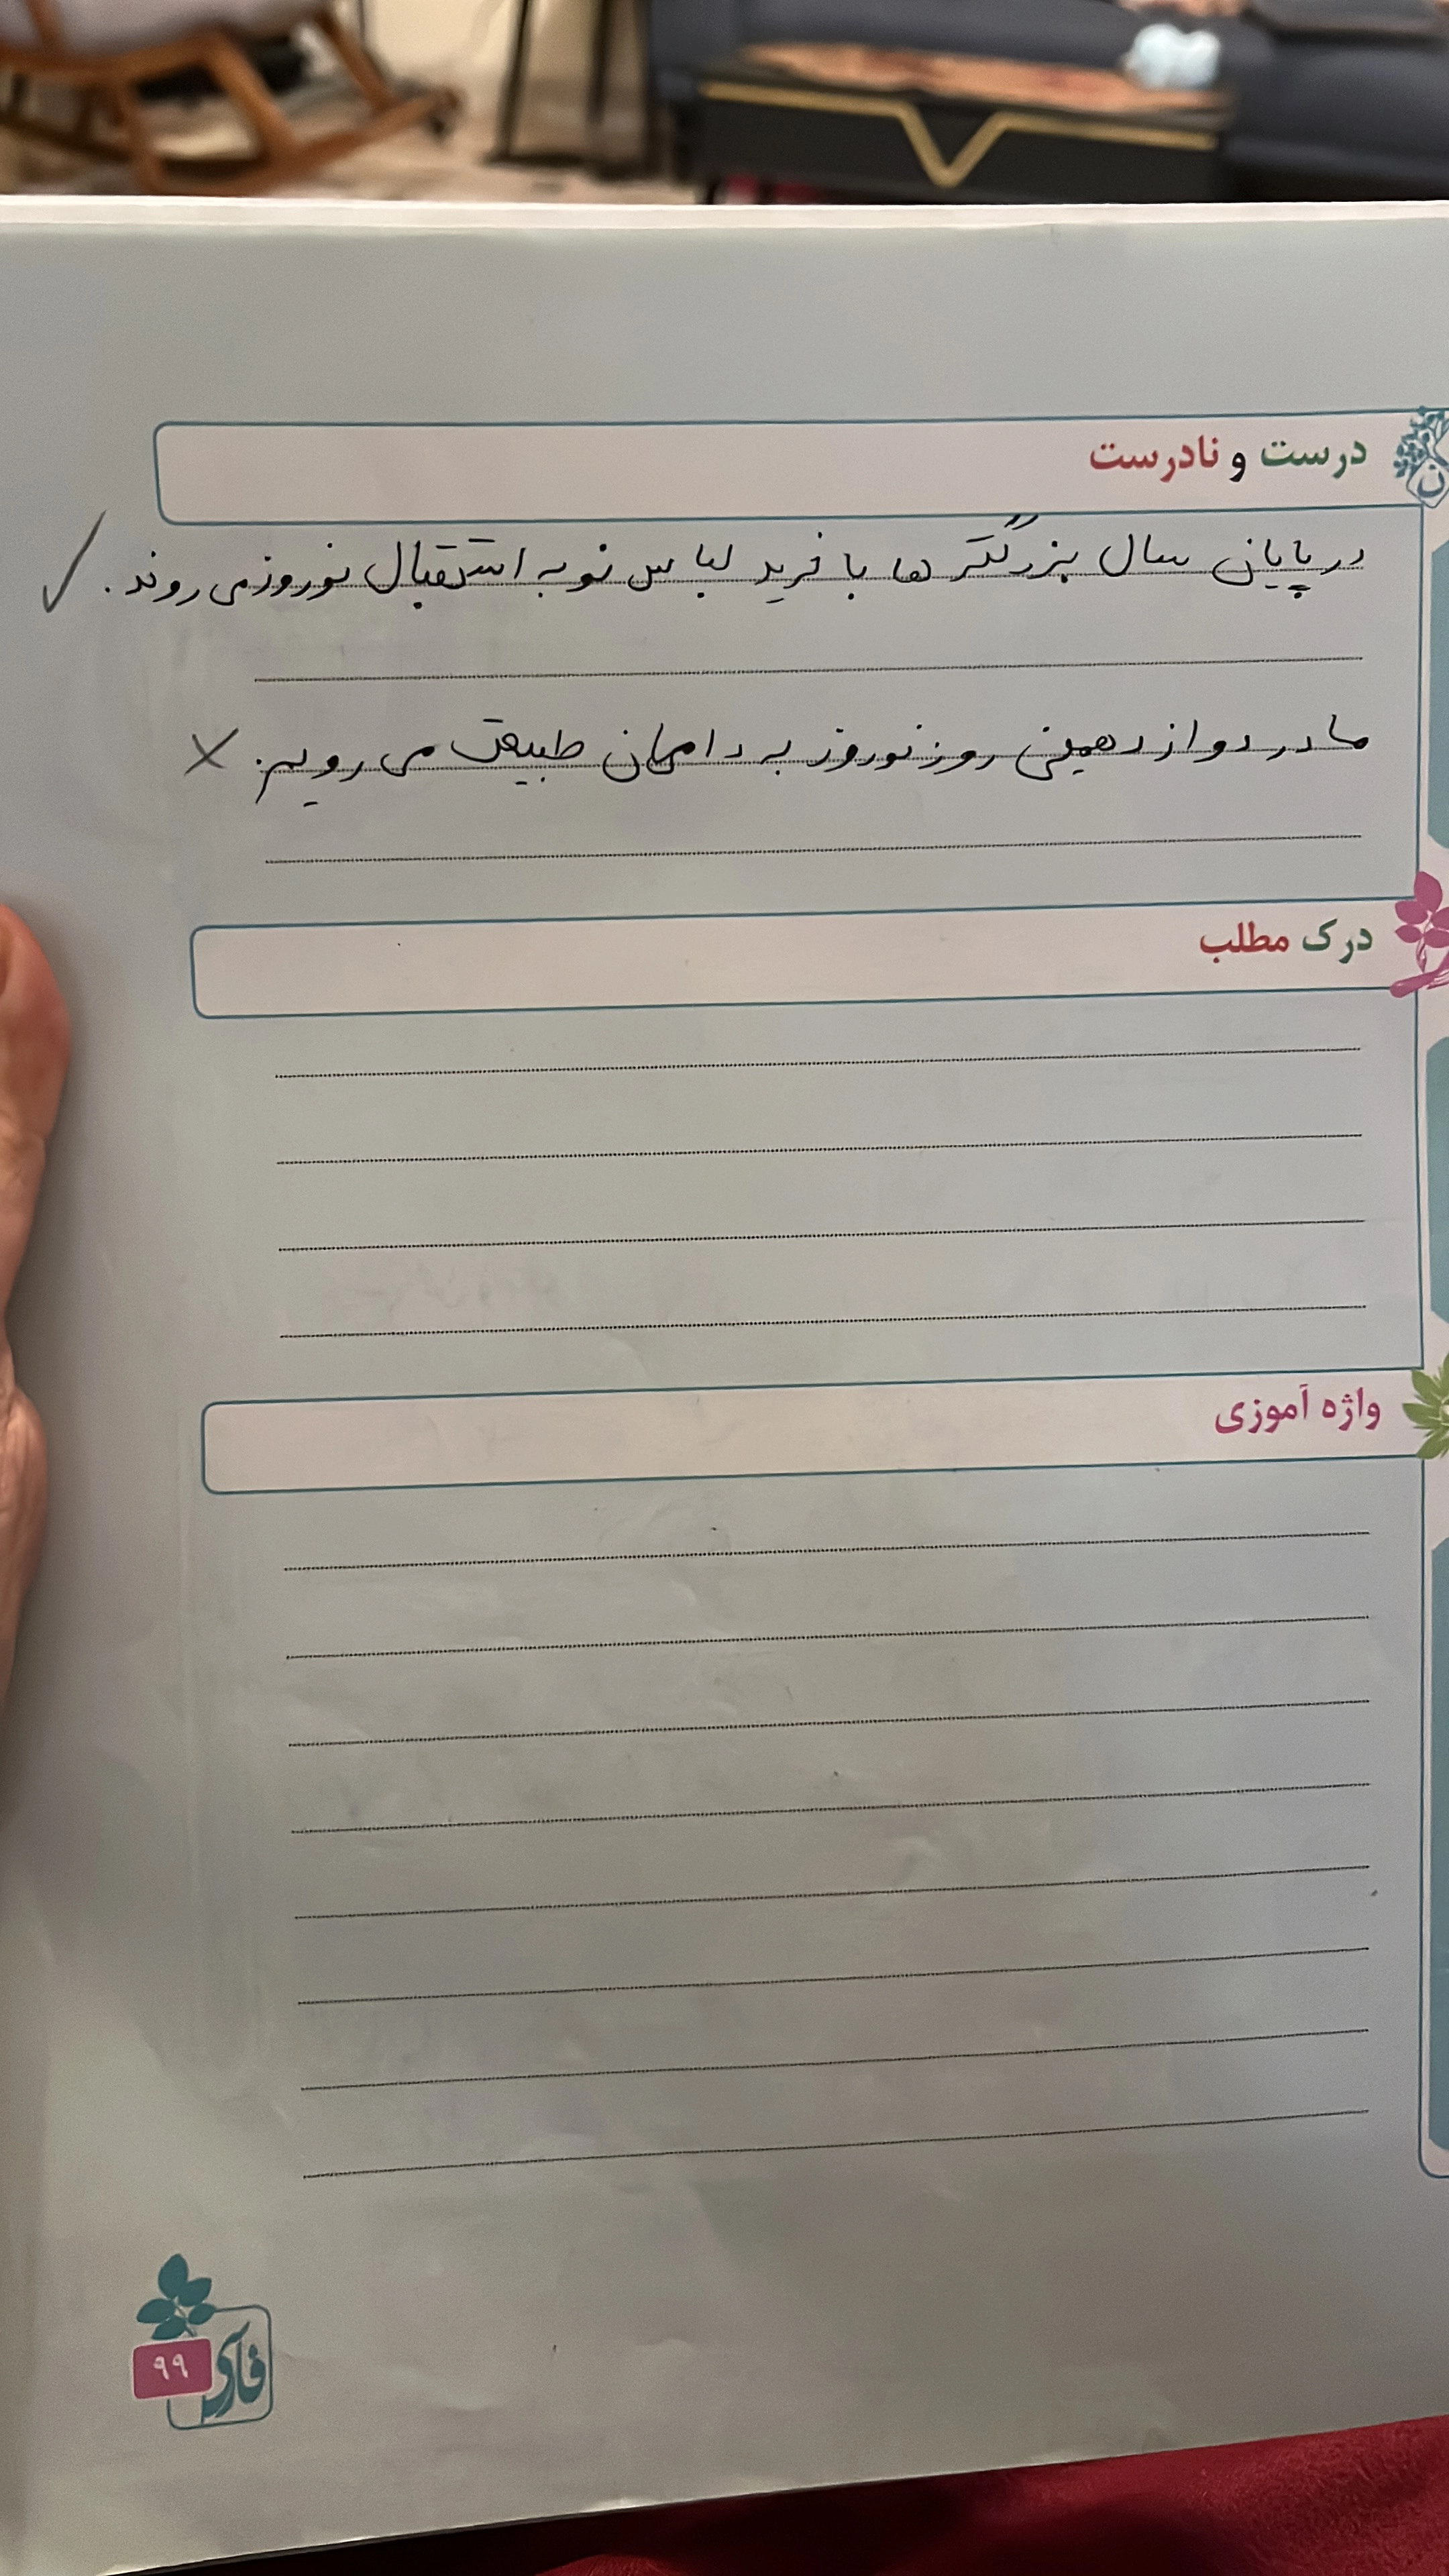 درست و نادرست
در پایان سال بزرگترها با خرید لباس نو به استقبال نوروز می روند. ✓
ما در دوازدهمین روز نوروز به دامان طبیعت می رویم. ✗
درک مطلب
واژه آموزی
۹۹